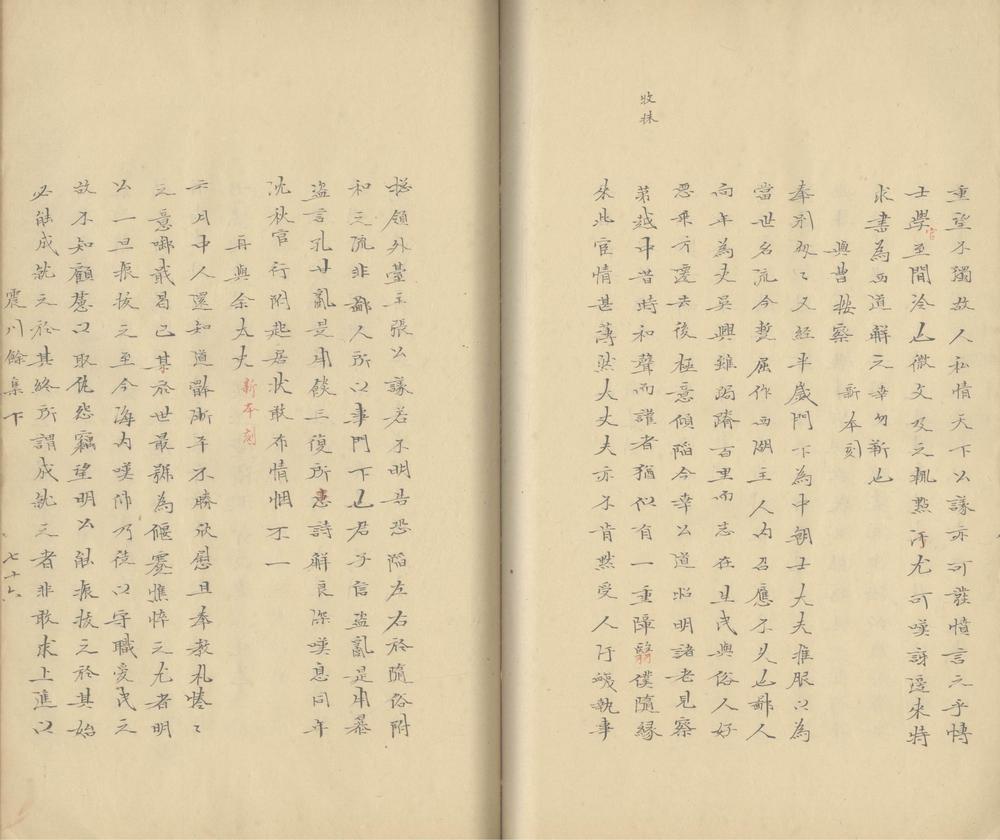 重望不獨故人私情天下公議亦可發憤言之乎博
士學官至閒冷也微文及之輒憖汙尤可嘆訝逶來特
求書為西道解之幸勿靳也
與曹按察 新本刻
奉别
又經半歲門下為中朝士大夫推服以為
當世名流今暫屈作西湖主人内召應不久也鄙人
向年為夫吳興雖跼蹐百里而志在且民與俗人好
惡乖方邊去後極意傾陷今幸公道昭明諸老見察
收抹
第越中昔時和聲而譁者猶似有一重障翳僕隨緣
來此宦情甚薄然大丈夫亦不肯黙受人汙衊執事
總領外臺主張公議若不明告恐陷左右於隨俗附
和之流非鄙人所以事門下也君子信盜亂是用暴
盜言孔甘亂是用餤三復所惠詩解良深嘆息同年
沈秋官行附起居狀敢布情悃不一
再與余太史 新本刻
六月中人還知道體漸平不勝欣慰且奉教札惓〻
之意哪戢曷已某於世最號為偃蹇憔悴之尤者明
公一旦振拔之至今海内嘆仰乃徒以守職愛民之
故不知顧慮以取仇怨竊望明公能振拔之於其始
必能成就之於其終所謂成就之者非敢求上進以
震川餘集下 七十六